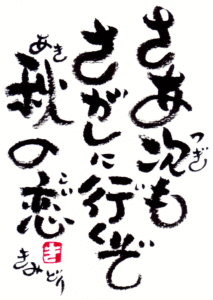 さあ次も
つぎ
さがしに行くぞ
い
秋の恋
あき
こい
き
きみどり